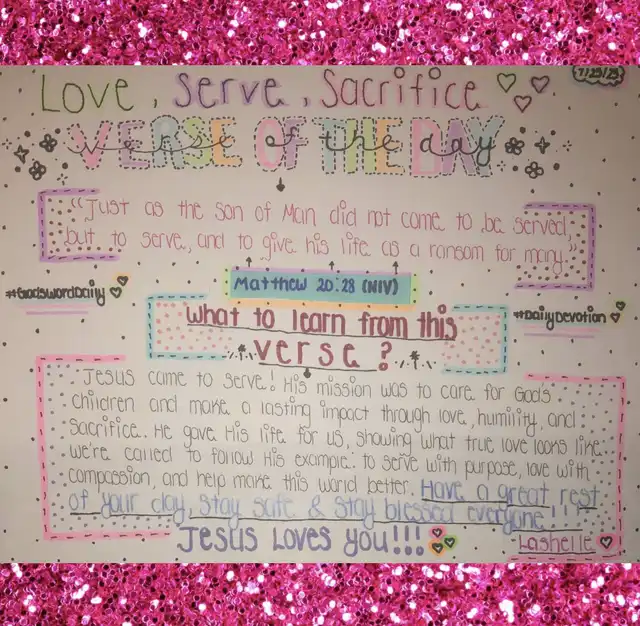 7/25/25
Love, Serve, Sacrifice
VERSE OF THE DAY
verse of the day
"Just as the son of Man did not come to be served,
but to serve, and to give his life as a ransom for many."
Matthew 20:28 (NIV)
#GodswordDaily
#DailyDevotion
What to learn from this
verse?
Jesus came to serve! His mission was to care for God's
children and make a lasting impact through love, humility, and
sacrifice. He gave His life for us, showing what true love looks like.
We're called to follow His example: to serve with purpose, love with
compassion, and help make this world better. Have a great rest
of your day, stay safe & stay blessed everyone!!!
Jesus Loves you!!!
Lashelle